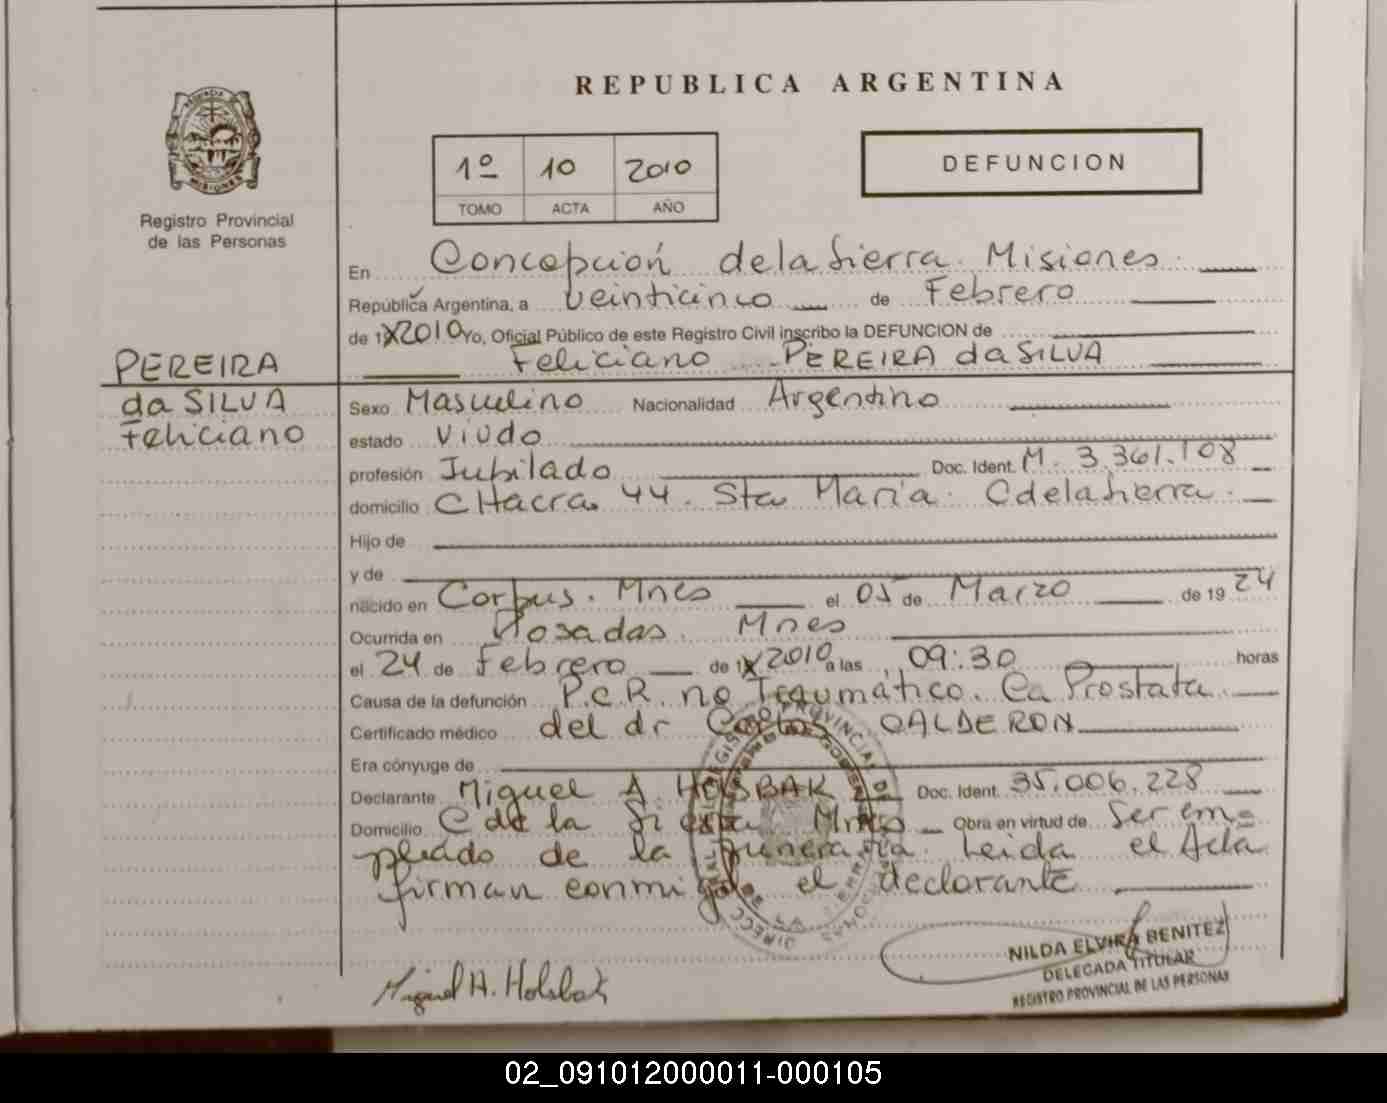 REPUBLICA ARGENTINA
1º 10 2010
TOMO ACTA AÑO
DEFUNCION
PROVINCIA DE
MISIONES
Registro Provincial
de las Personas
En Concepción de la Sierra. Misiones.
República Argentina, a veinticinco de Febrero
de 1X2010 Yo, Oficial Público de este Registro Civil inscribo la DEFUNCION de
Feliciano PEREIRA da SILVA
PEREIRA
da SILVA
Feliciano
Sexo Masculino Nacionalidad Argentino
estado Viudo
profesión Jubilado Doc. Ident. M. 3.361.108
domicilio CHacra 44. Sta María. C de la Sierra.
Hijo de
y de
nacido en Corpus. Mnes el 05 de Marzo de 1924
Ocurrida en Posadas. Mnes
el 24 de Febrero de 1X2010 a las 09:30 horas
Causa de la defunción P.C.R. no Traumático. Ca Prostata
Certificado médico del dr Carlos CALDERON
Era cónyuge de
Declarante Miguel A HOLSBAK Doc. Ident. 35.006.228
Domicilio C de la Sierra Mnes Obra en virtud de Ser em=
pleado de la funeraria. Leida el Acta
firman conmigo el declarante
Miguel A. Holsbak
NILDA ELVIRA BENITEZ
DELEGADA TITULAR
REGISTRO PROVINCIAL DE LAS PERSONAS
02_091012000011-000105